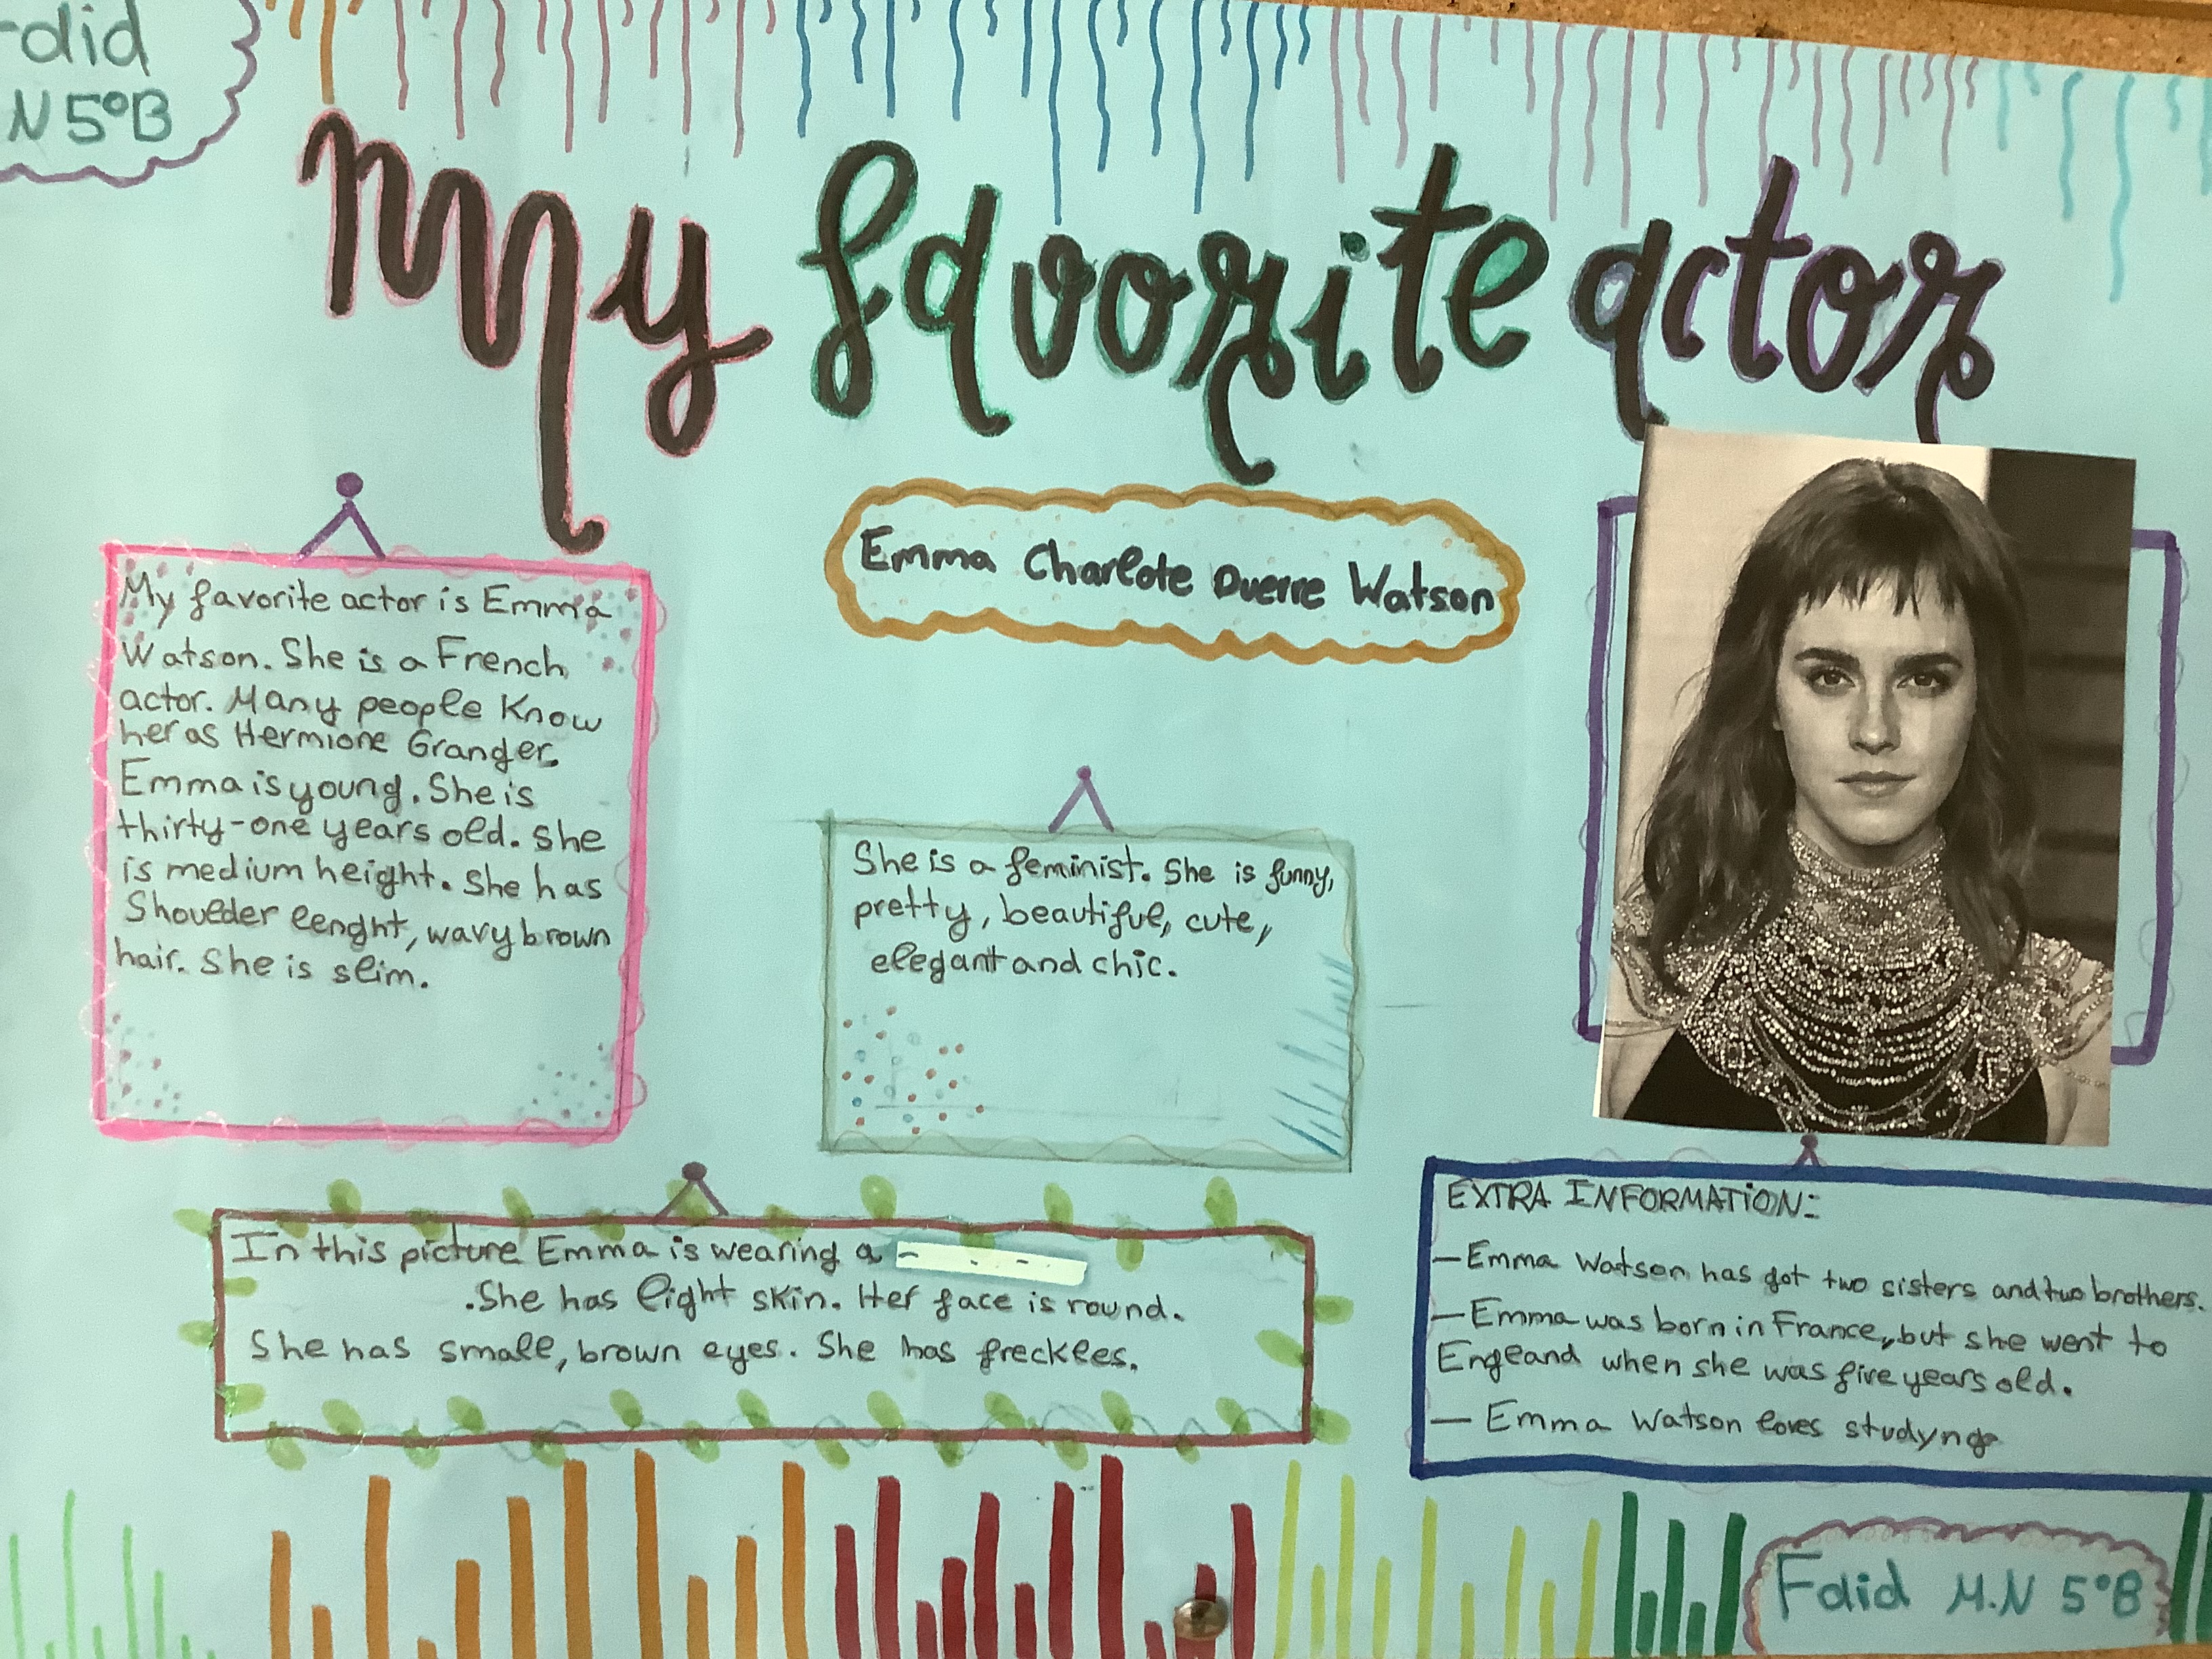 Faid
N 5ºB
My favorite actor
Emma Charlote Duerre Watson
My favorite actor is Emma
Watson. She is a French
actor. Many people Know
her as Hermione Granger.
Emma is young. She is
thirty-one years old. She
is medium height. She has
Shoulder lenght, wavy brown
hair. She is slim.
She is a feminist. She is funny,
pretty, beautiful, cute,
elegant and chic.
In this picture Emma is wearing a
.She has light skin. Her face is round.
She has small, brown eyes. She has freckles.
EXTRA INFORMATION:
—Emma Watson has got two sisters and two brothers.
—Emma was born in France, but she went to
England when she was five years old.
— Emma Watson loves studyng
Faid M.N 5ºB